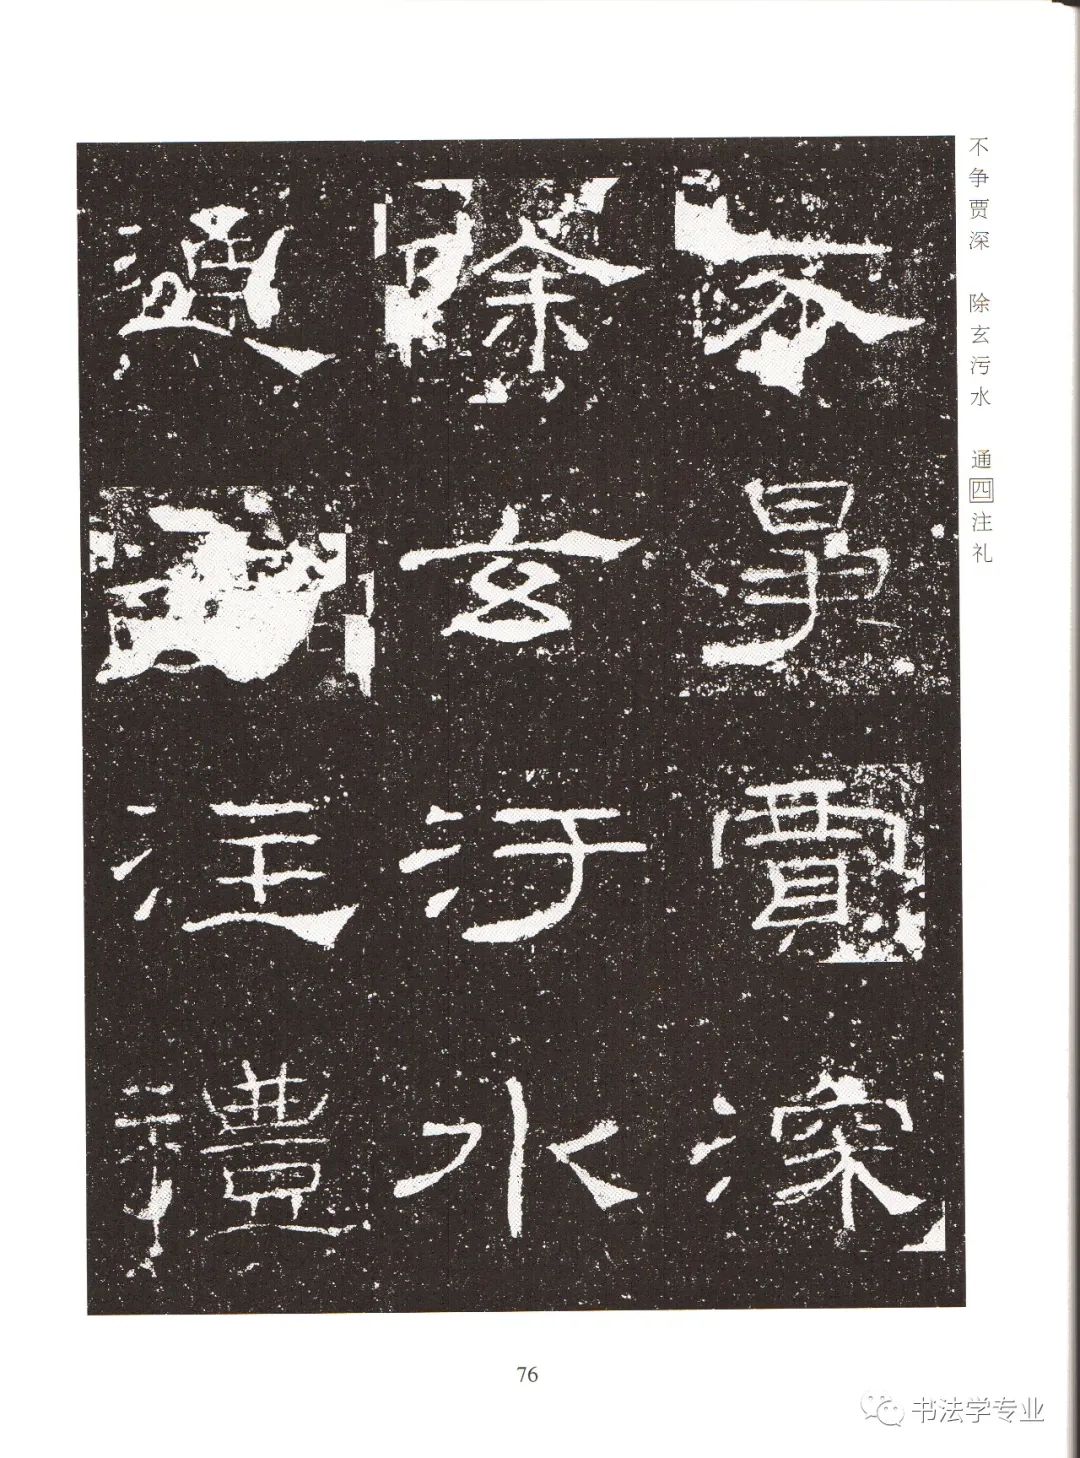 不争贾深 除玄污水 通四注礼
不爭賈深
除玄汙水
通注禮
76
书法学专业